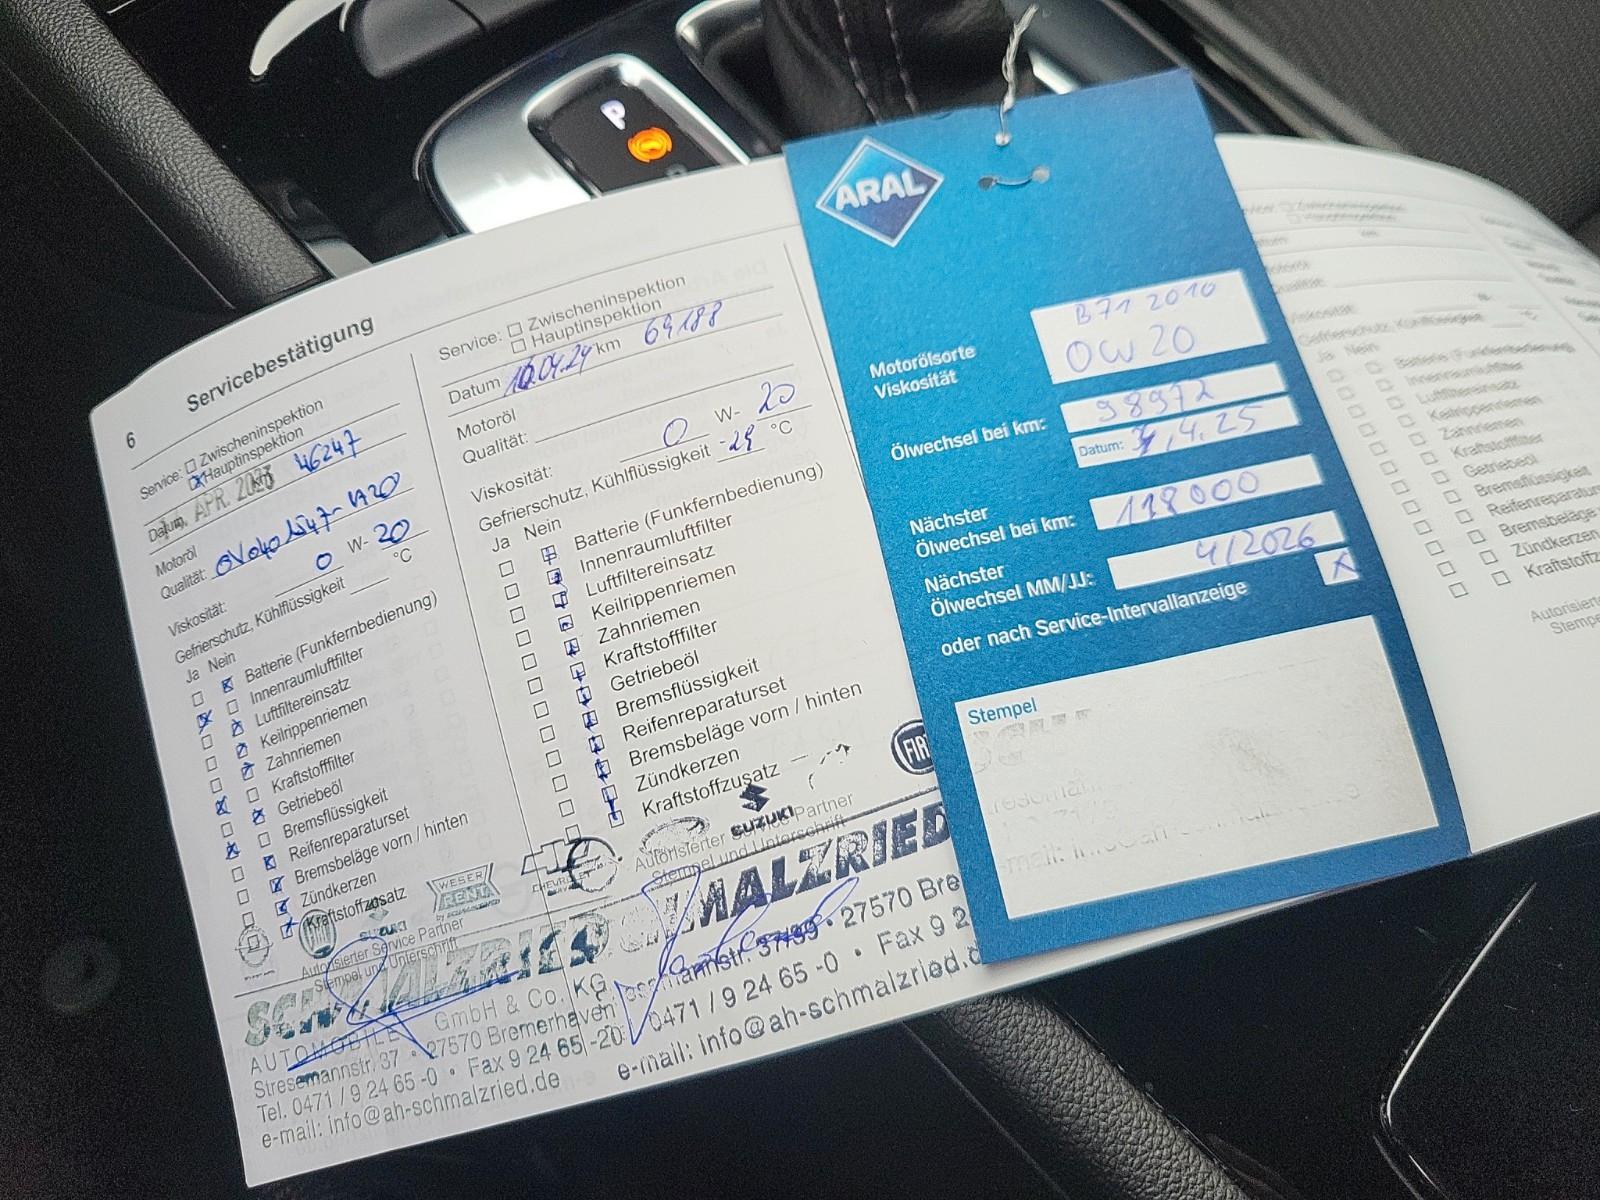 P
6
Servicebestätigung
Service: Zwischeninspektion
Hauptinspektion
APR. 2023 46247
Motoröl
Qualität:
Viskosität: 0 W- 20
Gefrierschutz, Kühlflüssigkeit °C
Ja Nein
Batterie (Funkfernbedienung)
Innenraumluftfilter
Luftfiltereinsatz
Keilrippenriemen
Zahnriemen
Kraftstofffilter
Getriebeöl
Bremsflüssigkeit
Reifenreparaturset
Bremsbeläge vorn / hinten
Zündkerzen
Kraftstoffzusatz
WESER
RENT
SUZUKI
Autorisierter Service Partner
Stempel und Unterschrift
SCHMALZRIED
AUTOMOBILE GmbH & Co. KG
Stresemannstr. 37 • 27570 Bremerhaven
Tel. 0471 / 9 24 65 -0 • Fax 9 24 65 -20
e-mail: info@ah-schmalzried.de
Service: Zwischeninspektion
Hauptinspektion
Datum 10.04.24 km 69188
Motoröl
Qualität:
Viskosität: 0 W- 20
Gefrierschutz, Kühlflüssigkeit -29 °C
Ja Nein
Batterie (Funkfernbedienung)
Innenraumluftfilter
Luftfiltereinsatz
Keilrippenriemen
Zahnriemen
Kraftstofffilter
Getriebeöl
Bremsflüssigkeit
Reifenreparaturset
Bremsbeläge vorn / hinten
Zündkerzen
Kraftstoffzusatz
CHEVROLET
SUZUKI
FIAT
Autorisierter Service Partner
Stempel und Unterschrift
SCHMALZRIED
27570 Bre
0471 / 9 24 65 -0 • Fax 9 2
e-mail: info@ah-schmalzried.d
ARAL
Motorölsorte B71 2010
Viskosität 0W20
Ölwechsel bei km: 98972
Datum: 7.4.25
Nächster
Ölwechsel bei km: 118000
Nächster
Ölwechsel MM/JJ: 4/2026
oder nach Service-Intervallanzeige X
Stempel
Zwischeninspektion
Hauptinspektion
Viskosität:
Gefrierschutz, Kühlflüssigkeit
Ja Nein
Batterie (Funkfernbedienung)
Innenraumluftfilter
Luftfiltereinsatz
Keilrippenriemen
Zahnriemen
Kraftstofffilter
Getriebeöl
Bremsflüssigkeit
Reifenreparaturs
Bremsbeläge vorn
Zündkerzen
Kraftstoffz
Autorisierte
Stempe